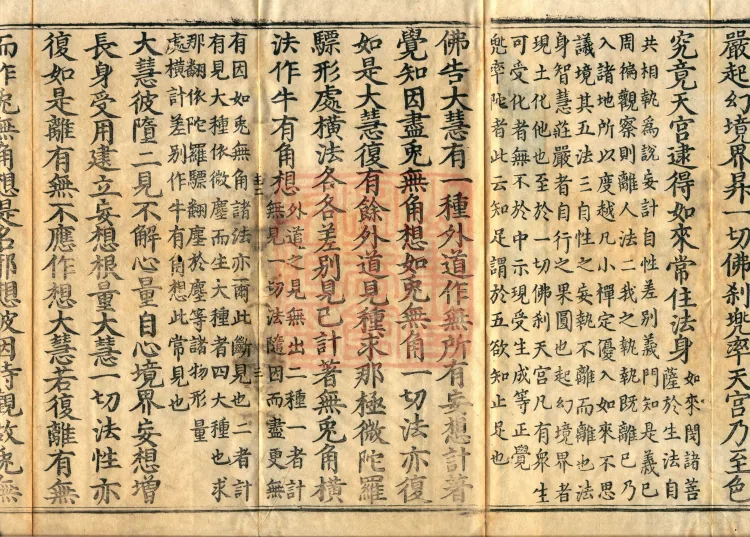 嚴起幻境界昇一切佛刹兜率天宫乃至色
究竟天宮逮得如來常住法身
如來閔諸菩
薩於生法自
共相執爲說妄計自性差别義門知是義已
周徧觀察則離人法二我之執執既離已乃
入諸地所以度越凡小禪定優入如來不思
議境其五法三自性之妄執不離而離也法
身智慧莊嚴者自行之果圓也起幻境界者
現土化他也至於一切佛刹天宮凡有衆生
可受化者無不於中示現受生成等正覺
兠率陀者此云知足謂於五欲知止足也
佛告大慧有一種外道作無所有妄想計著
覺知因盡兎無角想如兎無角一切法亦復
如是大慧復有餘外道見種求那極微陀羅
驃形處橫法各各差别見已計著無兎角橫
法作牛有角想
外道之見無出二種一者計
無見一切法隨因而盡更無
有因如兎無角諸法亦爾此斷見也二者計
有見大種依微塵而生大種者四大種也求
那翻依陀羅驃翻塵於塵等諸物形量
處橫計差别作牛有角想此常見也
大慧彼墮二見不解心量自心境界妄想增
長身受用建立妄想根量大慧一切法性亦
復如是離有無不應作想大慧若復離有無
而作兎無角想是名邪想彼因待觀故兎無